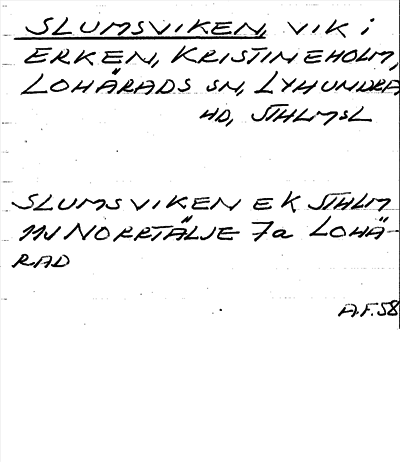 SLUMSVIKEN, VIK i
ERKEN, KRISTINEHOLM,
LOHÄRADS SN, LYHUNDRA
HD, STHLMSL
SLUMSVIKEN EK STHLM
11J NORRTÄLJE 7a LOHÄ-
RAD
A.F.58